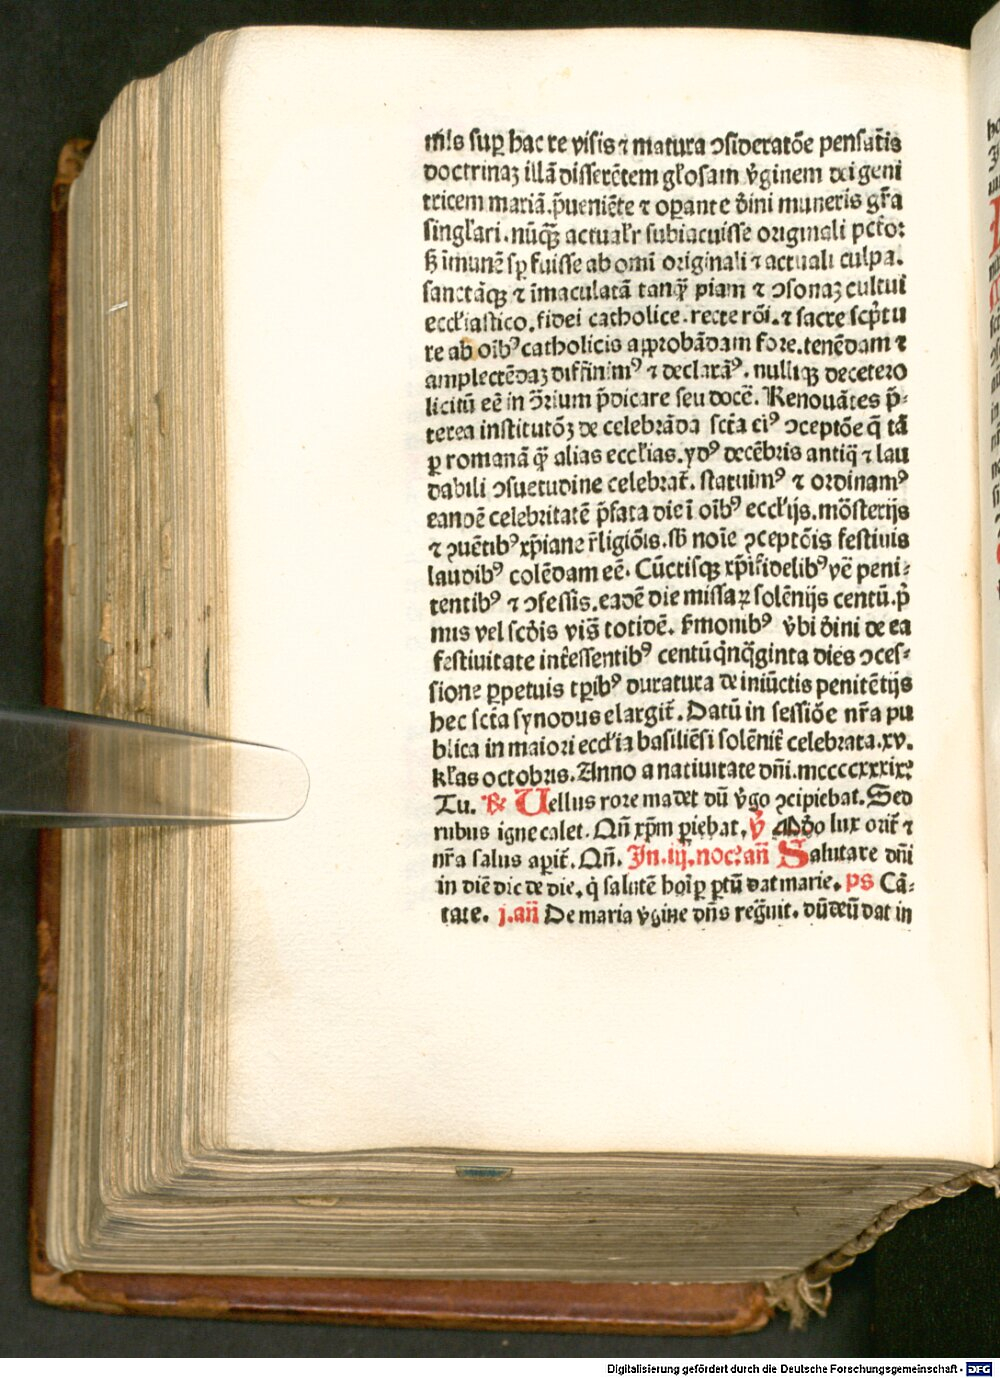 mĺs suꝑ hac re visis ⁊ matura ↄsideratōe pensatis
doctrinaꝫ illā disserētem gl̄osam v̄ginem dei geni
tricem mariā. p̄ueniēte ⁊ oꝑante dīni muneris gr̄a
singlari. nūqꝫ actualr̄ subiacuisse originali pctō:
ß īmunē sꝑ fuisse ab omī originali ⁊ actuali culpa.
sanctāqꝫ ⁊ īmaculatā tanq̄ȝ piam ⁊ ↄsonaꝫ cultui
eccl̄iastico. fidei catholice. recte rōi. ⁊ sacre scp̄tu
re ab oībꝰ catholicis approbādam fore. tenēdam ⁊
amplectēdaꝫ diffinimꝰ ⁊ declaramꝰ. nulliqꝫ decetero
licitū eē in ↄ̄rium p̄dicare seu docē. Renouātes p̄-
terea institutōꝫ de celebrāda sctā eiꝰ ↄceptōe q̄ tā
ꝑ romanā q̄ȝ alias eccl̄ias. ydꝰ decēbris antiq̄ ⁊ lau
dabili ↄsuetudine celebrat̄. statuimꝰ ⁊ ordinamꝰ
eandē celebritatē p̄fata die ī oībꝰ eccl̄ijs. mōsterijs
⁊ ↄuētibꝰ xp̄iane r̄ligiōis. sb̄ noīe ↄceptōis festiuis
laudibꝰ colēdam eē. Cūctisqꝫ xp̄ifidelibꝰ vē peni-
tentibꝰ ⁊ ↄfessis. eadē die missaꝝ solēnijs centū. p̄
mis vel scd̄is vis̄ totidē. ẜmonibꝰ v̄bi dīni de ea
festiuitate int̄essentibꝰ centūq̄nq̄ginta dies ↄces-
sione ꝑpetuis tp̄ibꝰ duratura de iniūctis penitētijs
hec sctā synodus elargit̄. Datū in sessiōe nr̄a pu
blica in maiori eccl̄ia basiliēsi solēnit̄ celebrata. xv.
kl̄as octobris. Anno a natiuitate dn̄i. mccccxxxix:
Tu. ℞ Uellus rore madet dū v̄go ↄcipiebat. Sed
rubus igne calet. Qn̄ xp̄m pieḃat. ℣ Mūdo lux orit̄ ⁊
nr̄a salus aꝑit̄. Qn̄. Jn. iij. noc: an̄ Salutare dn̄i
in diē dic de die. q̇ salutē hoīꝑ ꝑtū dat marie. ps Cā-
tate. j. an̄ De maria v̄gine dn̄s reḡuit. dū deū dat in